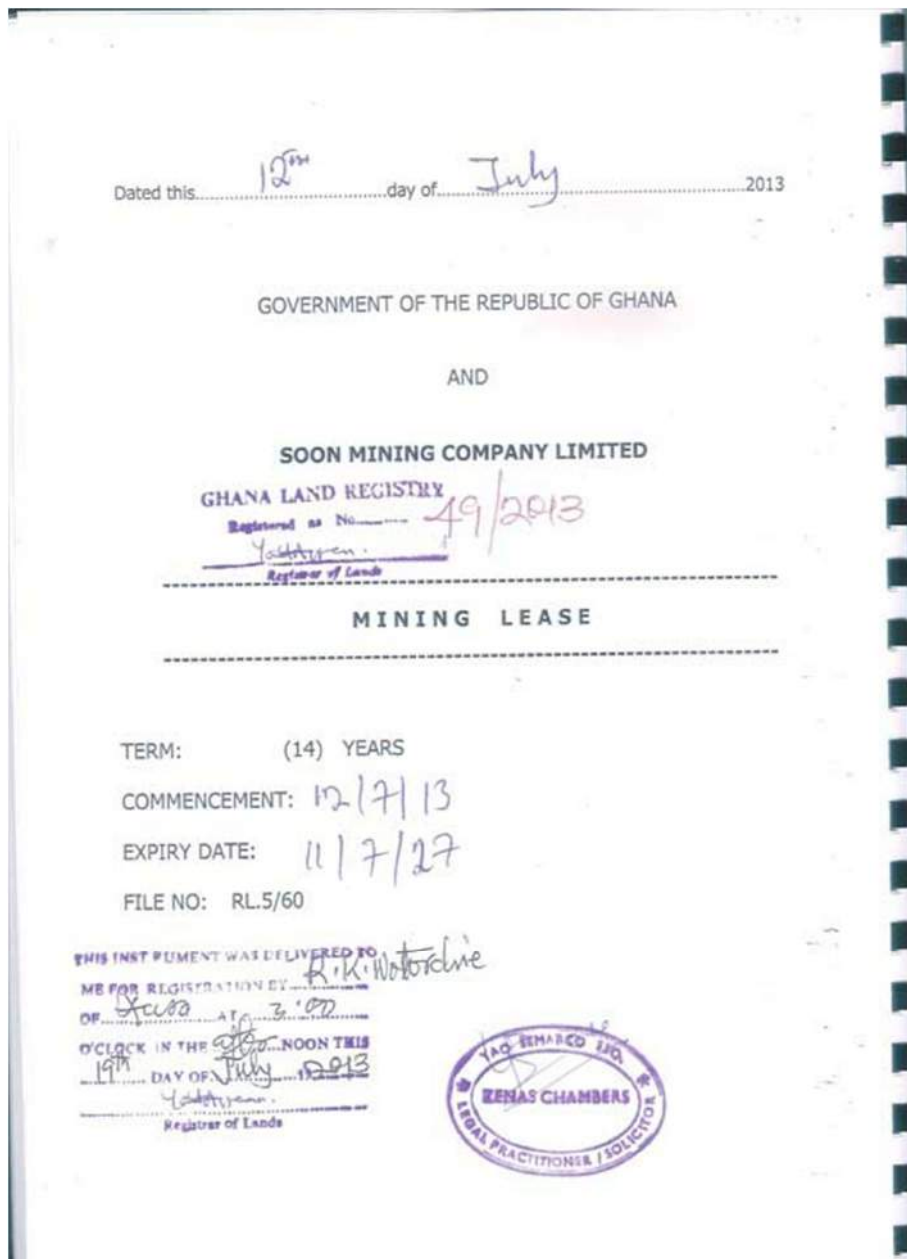 Dated this..........12TH..........day of..........July..........2013
GOVERNMENT OF THE REPUBLIC OF GHANA
AND
SOON MINING COMPANY LIMITED
GHANA LAND REGISTRY
Registered as No. 49/2013
Registrar of Lands
MINING LEASE
TERM: (14) YEARS
COMMENCEMENT: 12/7/13
EXPIRY DATE: 11/7/27
FILE NO: RL.5/60
THIS INSTRUMENT WAS DELIVERED TO
ME FOR REGISTRATION BY R.K.
OF AT 3:00
O'CLOCK IN THE after NOON THIS
19th DAY OF July 2013
Registrar of Lands
ZENAS CHAMBERS
LEGAL PRACTITIONER / SOLICITOR